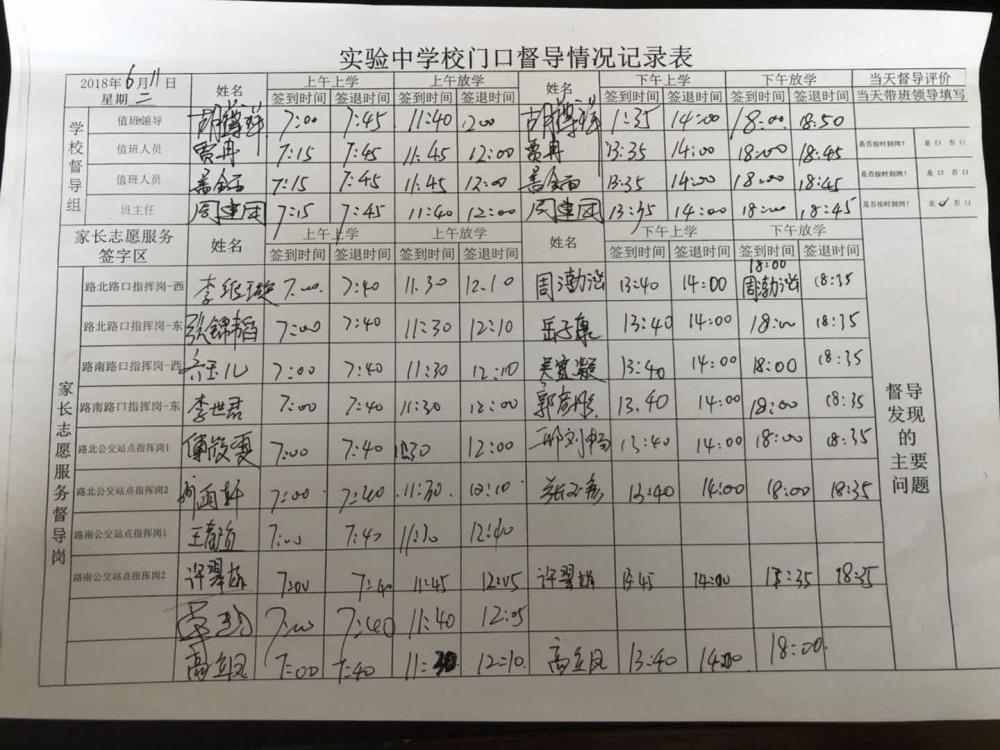 实验中学校门口督导情况记录表
2018年6月11日 姓名 上午上学 上午放学 姓名 下午上学 下午放学 当天督导评价
星期二 签到时间 签退时间 签到时间 签退时间 签到时间 签退时间 签到时间 签退时间 当天带班领导填写
学校督导组
值班领导 7:00 7:45 11:40 12:00 1:35 14:00 18:00 18:50
值班人员 贾冉 7:15 7:45 11:45 12:00 贾冉 13:35 14:00 18:00 18:45 是否按时到岗? 是 口 否 口
值班人员 7:15 7:45 11:45 12:00 13:35 14:00 18:00 18:45 是否按时到岗? 是 口 否 口
班主任 周建团 7:15 7:45 11:40 12:00 周建团 13:35 14:00 18:00 18:45 是否按时到岗? 是 ✓ 否 口
家长志愿服务 姓名 上午上学 上午放学 姓名 下午上学 下午放学
签字区 签到时间 签退时间 签到时间 签退时间 签到时间 签退时间 签到时间 签退时间
家长志愿服务督导岗
路北路口指挥岗-西 7:00 7:40 11:30 12:10 13:40 14:00 18:00 18:35
路北路口指挥岗-东 张锦韬 7:00 7:40 11:30 12:10 岳子康 13:40 14:00 18:00 18:35
路南路口指挥岗-西 7:00 7:40 11:30 12:10 13:40 14:00 18:00 18:35
路南路口指挥岗-东 李世君 7:00 7:40 11:30 12:00 13:40 14:00 18:00 18:35
路北公交站点指挥岗1 7:00 7:40 11:30 12:00 13:40 14:00 18:00 18:35
路北公交站点指挥岗2 7:00 7:40 11:30 12:10 13:40 14:00 18:00 18:35
路南公交站点指挥岗1 7:00 7:40 11:30 12:40
路南公交站点指挥岗2 许翠娟 7:00 7:40 11:45 12:05 许翠娟 13:45 14:00 18:35
7:00 7:40 11:40 12:05
高立凤 7:00 7:40 11:30 12:10 高立凤 13:40 14:00 18:00
督导
发现
的
主要
问题